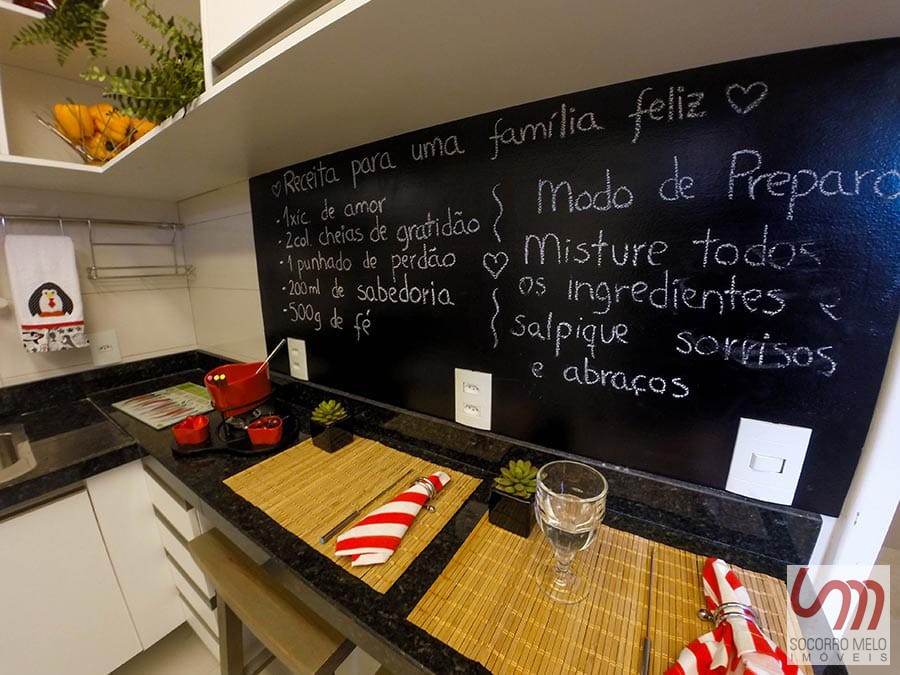 ♡Receita para uma família feliz ♡
-1xic. de amor
-2col. cheias de gratidão
-1 punhado de perdão
-200ml de sabedoria
-500g de fé
Modo de Preparo
Misture todos
os ingredientes e
salpique sorrisos
e abraços
SM
SOCORRO MELO
IMÓVEIS